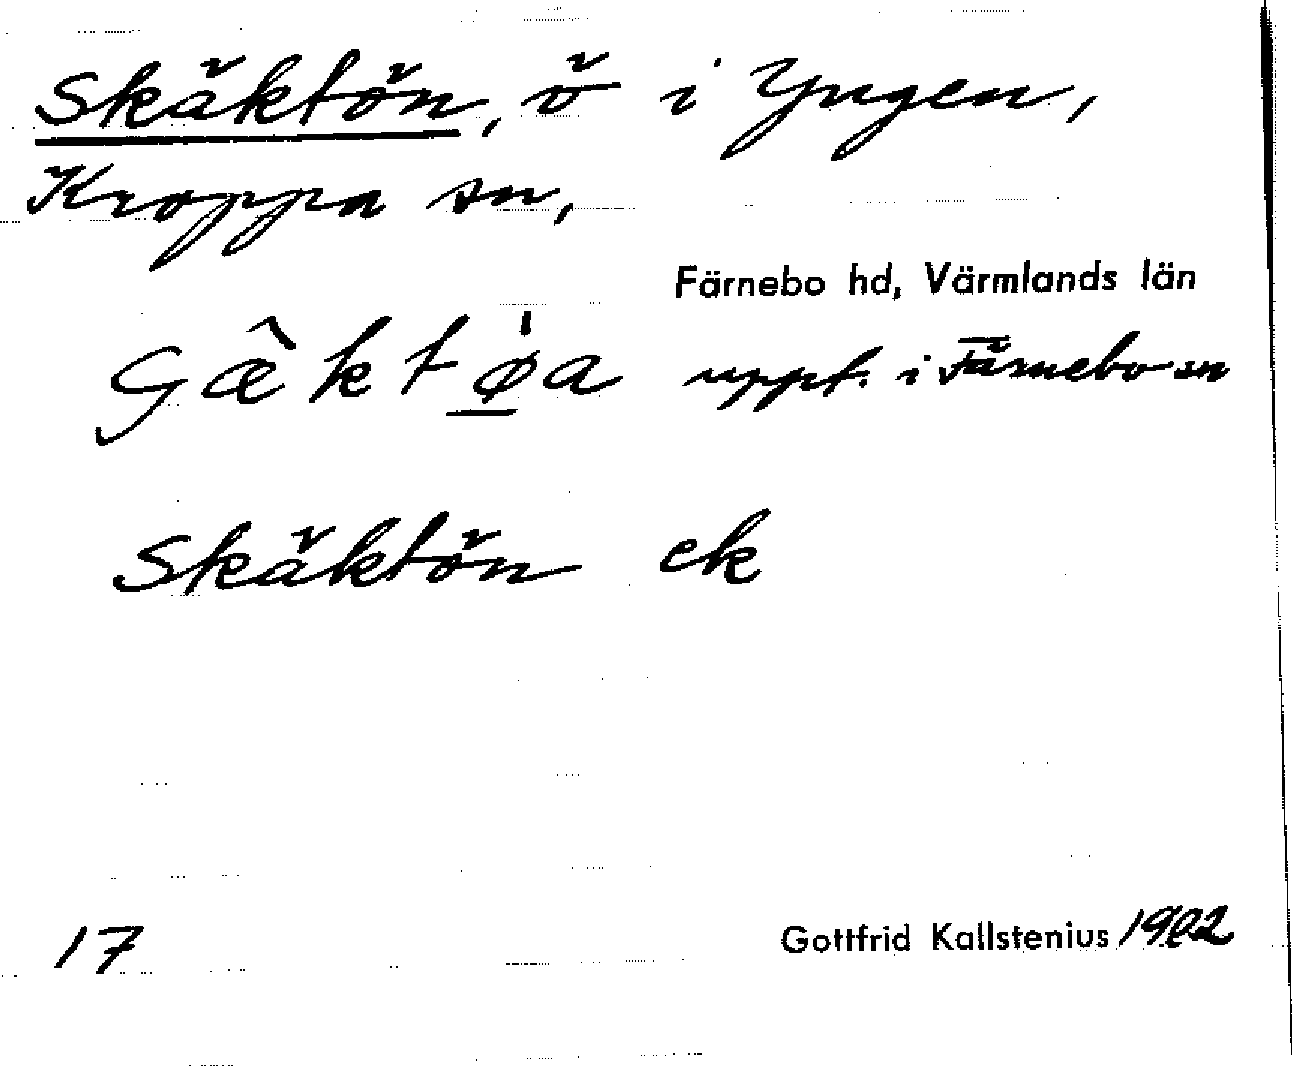 Skäktön, ö i Yngen,
Kroppa sn,
Färnebo hd, Värmlands län
Gæ̂ktø̱̍a uppt. i Färnebo sn
Skäktön ek
17
Gottfrid Kallstenius 1902